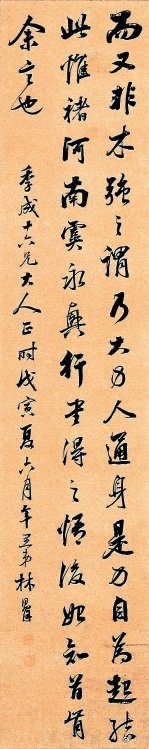 而又非木強之謂乃大力人通身是力自為起結
此惟褚河南虞永興行書得之悟後始知首肯
余言也
季成十六兄大人正時戊寅夏六月年愚弟林